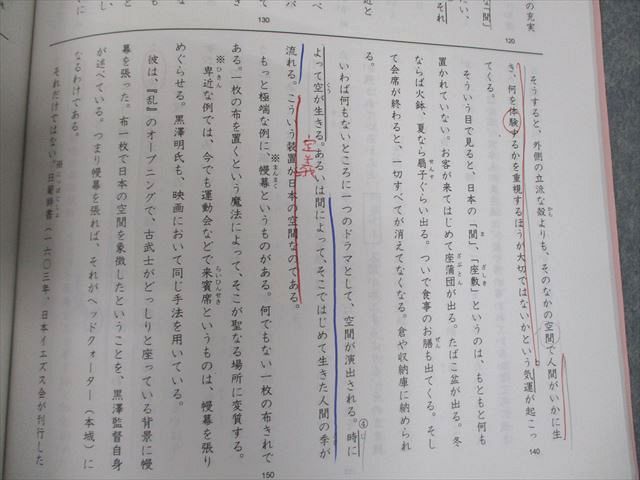 の充実
120
「間」
だい、
それ
近と
130
そうすると、外側の立派な殻よりも、そのなかの空間で人間がいかに生
き、何を体験するかを重視するほうが大切ではないかという気運が起こっ
てくる。
そういう目で見ると、日本の「間」、「座敷」というのは、もともと何も
置かれていない。お客が来てはじめて座蒲団が出る。たばこ盆が出る。冬
ならば火鉢、夏なら扇子ぐらい出る。ついで食事のお膳も出てくる。そし
て会席が終わると、一切すべてが消えてなくなる。倉や収納庫に納められ
る。
いわば何もないところに一つのドラマとして、空間が演出される。時に
よって空が生きる。あるいは間によって、そこではじめて生きた人間の季が
流れる。こういう装置が日本の空間なのである。
定義
もっと極端な例に、※幔幕というものがある。何でもない一枚の布きれで
ある。一枚の布を置くという魔法によって、そこが聖なる場所に変質する。
※卑近な例では、今でも運動会などで来賓席というものは、幔幕を張り
めぐらせる。黒澤明氏も、映画において同じ手法を用いている。
彼は、『乱』のオープニングで、古武士がどっしりと座っている背景に幔
幕を張った。布一枚で日本の空間を象徴したということを、黒澤監督自身
が述べている。つまり幔幕を張れば、それがヘッドクォーター（本城）に
なるわけである。
それだけではない。※日葡辞書（一六〇三年、日本イエズス会が刊行した
140
150
④